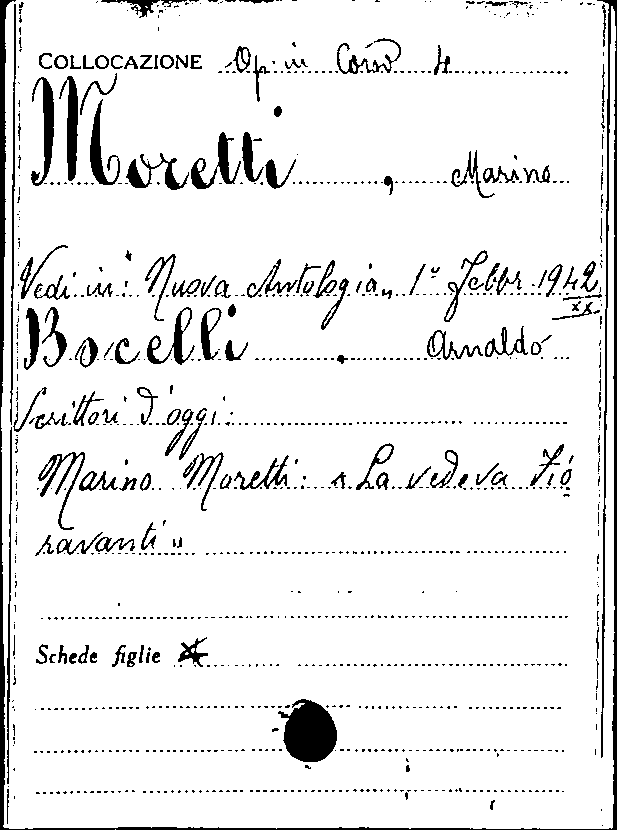 COLLOCAZIONE Op. in Corso 4
Moretti, Marino
Vedi in: "Nuova Antologia" 1° Febbr. 1942
XX
Bocelli. Arnaldo
Scrittori d'oggi:
Marino Moretti: "La vedeva Fio
ravanti"
Schede figlie